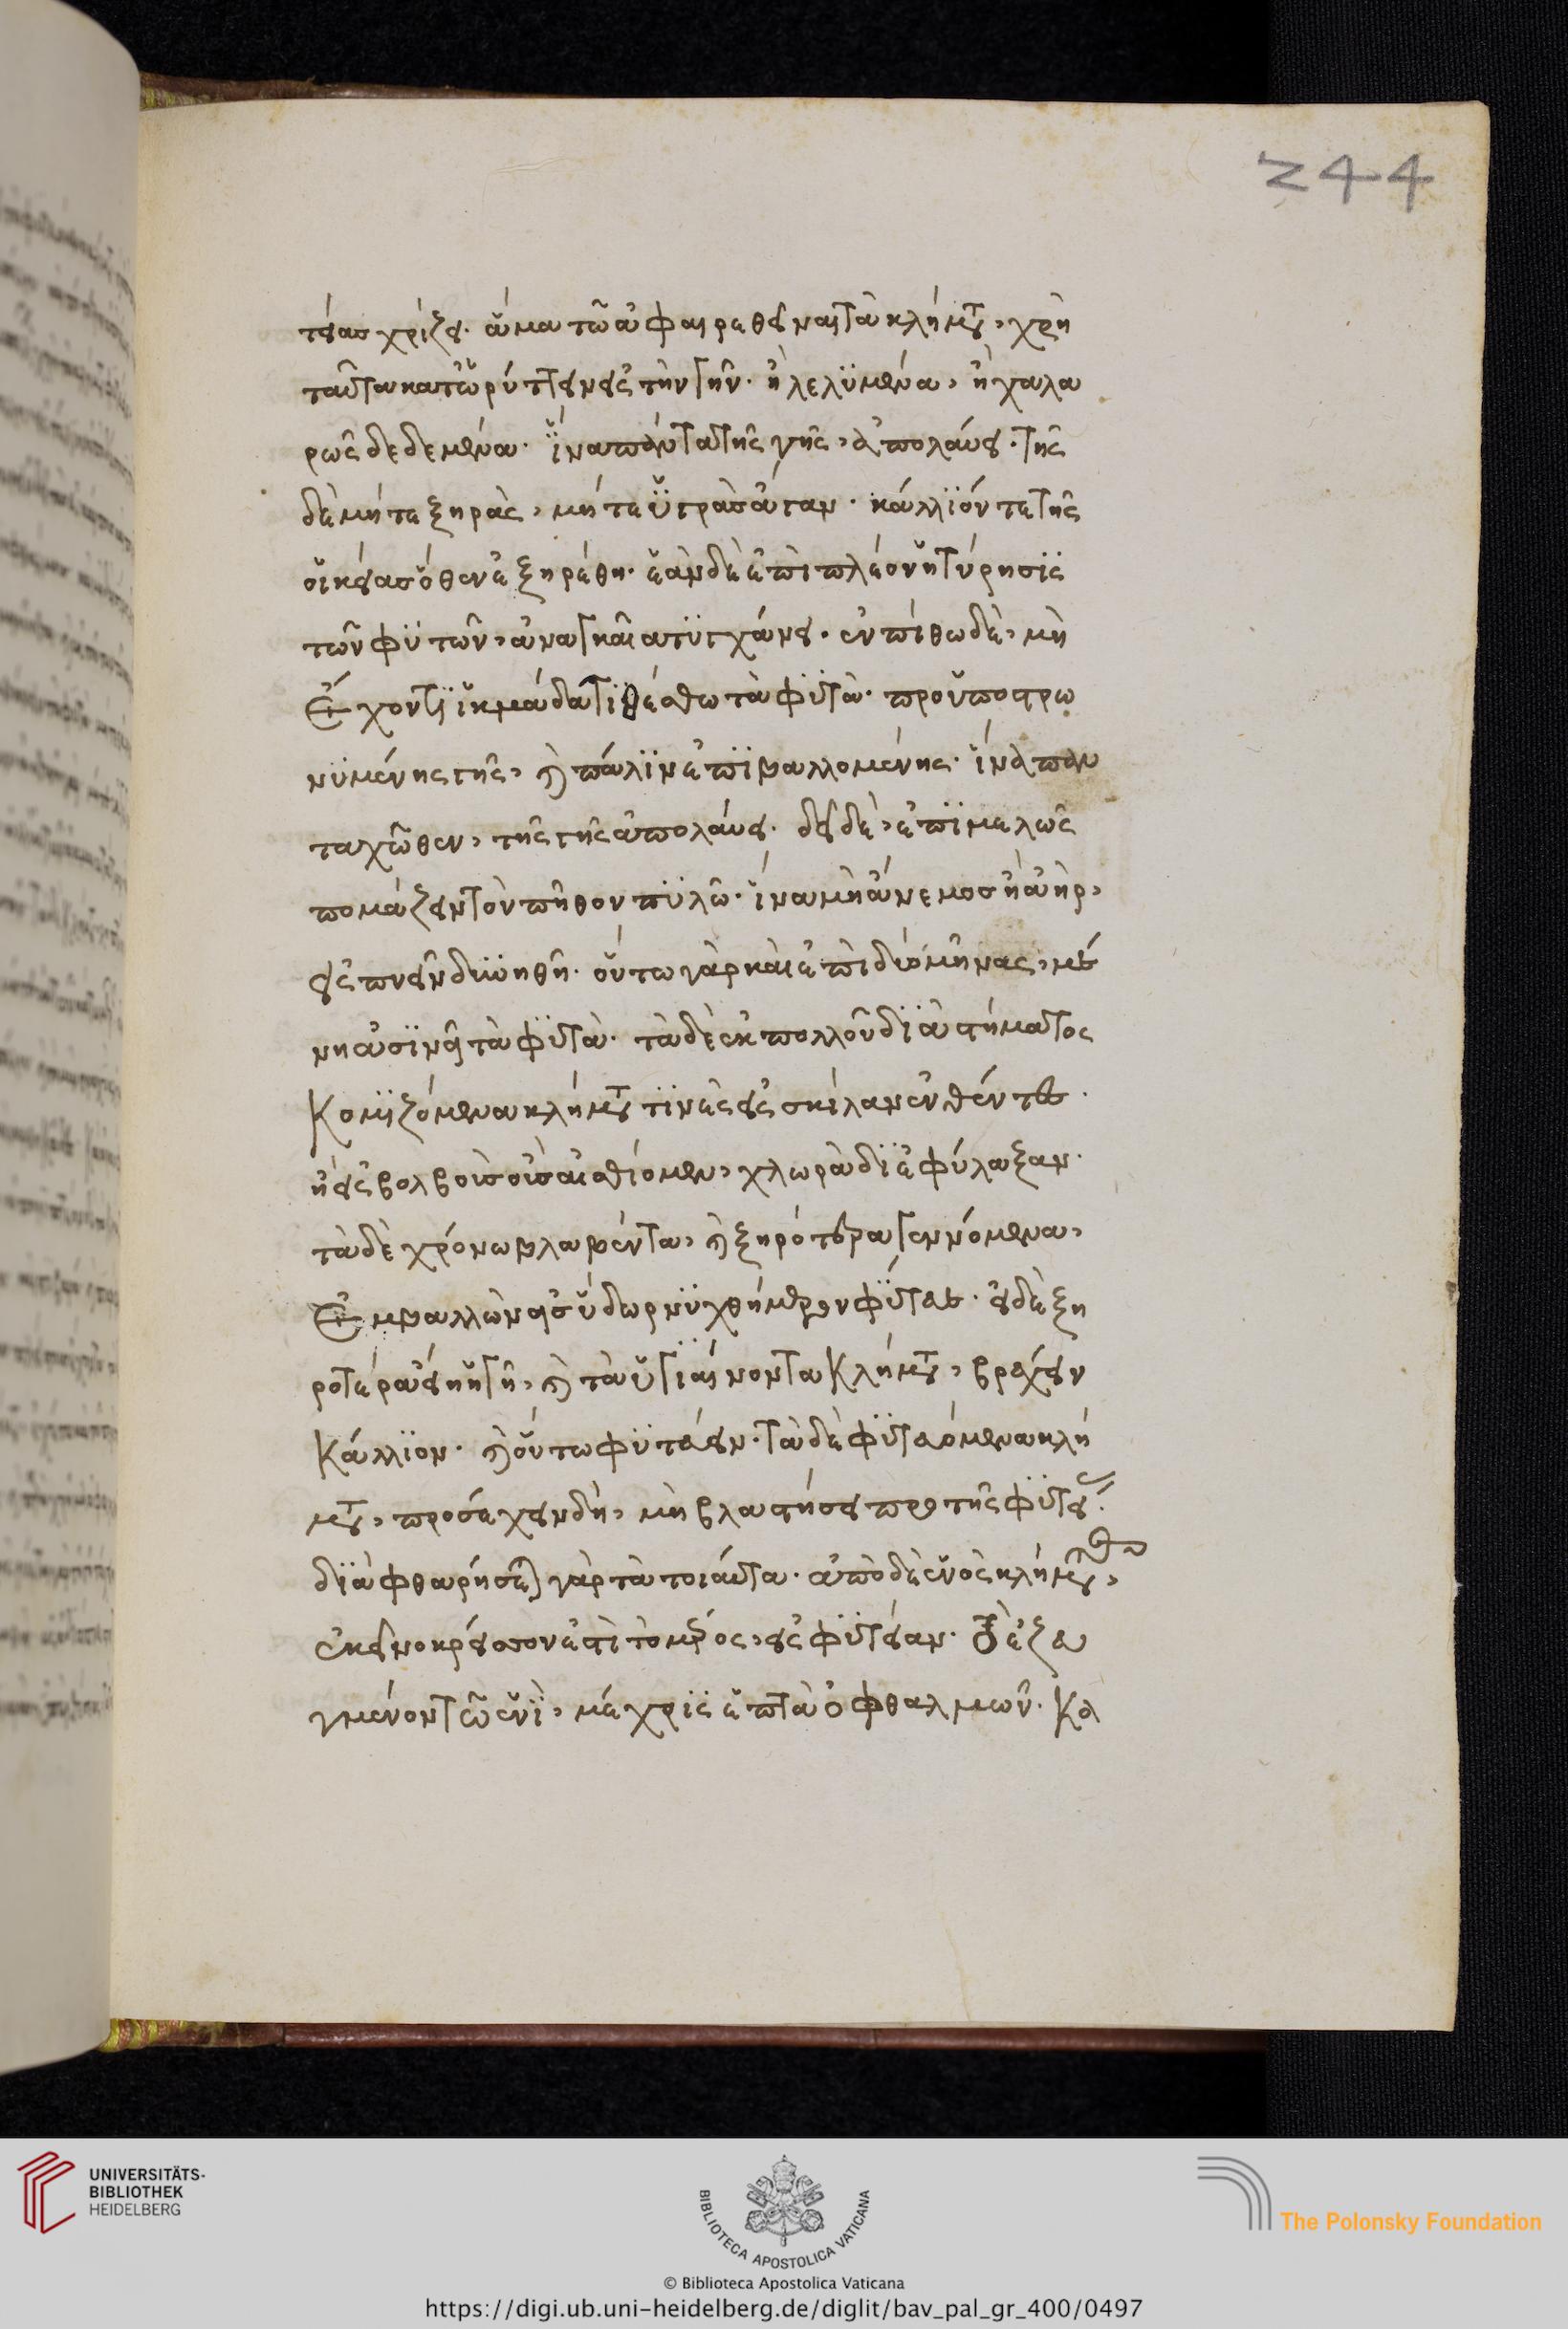 244
τείας χρήζει. ἅμα τῶ ἀφαιρεθῆναι τὰ κλήματα, χρὴ
ταῦτα κατορύττειν εἰς τὴν γῆν. ἢ λελϋμένα, ἢ χαλα
ρῶς δεδεμένα. ἵνα πάντα τῆς γῆς, ἀπολάυει. τῆς
δὲ μήτε ξηρᾶς, μήτε ὑγρᾶς ἄγαν. κάλλϊόν τε τῆς
οἰκείας ὅθεν ἐξηρέθη. ἐὰν δὲ ἐπὶ πλέον ἡ τήρησϊς
τῶν φϋτῶν, ἀναγκαία τϋγχάνει. ἐν πίθω δὲ, μὴ
ἔχοντϊ ἰκμάδα τϊθέσθω τὰ φϋτὰ. προϋποστρω
νϋμένης γῆς, καὶ πάλϊν ἐπϊβαλλομένης. ἵνα παν
ταχῶθεν, τῆς γῆς ἀπολάυει. δεῖ δὲ, ἐπϊμελῶς
πομάζειν τὸν πῆθον πϋλῶ. ἵνα μὴ ἄνεμος ἢ ἀὴρ,
εἰσπνεῖν δϋνηθῆ. οὕτω γὰρ καὶ ἐπὶ δύο μῆνας, μέ
νηἀσϊναῖ τὰ φϋτὰ. τὰ δὲ ἐκ πολλοῦ δϊαστήματος
Κομϊζόμενα κλήματα τϊνὲς εἰς σκίλαν ἐνθέντες.
ἢ εἰς βολβοὺς οὓς αἰσθίομεν, χλωρὰ δϊεφύλαξαν.
τὰ δὲ χρόνω βλαβέντα, καὶ ξηρότερα γεννόμενα,
Ἐμβαλλὼν εἰς ὕδωρ νϋχθήμερον φϋτευε. εἰ δὲ ξη
ροτέρα εἴη ἡ γῆ, καὶ τὰ ὑγϊαίνοντα Κλήματα, βρέχειν
Κάλλϊον. καὶ οὕτω φϋτεύειν. τὰ δὲ φϋτευόμενα κλή
ματα, προσέχειν δὴ, μὴ βλαστήσει προ τῆς φϋτείας.
δϊαφθαρήσεται γὰρ τὰ τοιάυτα. ἀπὸ δὲ ἑνὸς κλήματος,
ἐκεῖνο κρεῖσσον ἐστὶ τὸ μέρος, εἰς φϋτείαν. τὸ ἐζευ
γμένον τῶ ἑνϊ, μέχρϊς ἑπτὰ ὀφθαλμῶν. Κα
UNIVERSITÄTS-
BIBLIOTHEK
HEIDELBERG
BIBLIOTECA APOSTOLICA VATICANA
The Polonsky Foundation
© Biblioteca Apostolica Vaticana
https://digi.ub.uni-heidelberg.de/diglit/bav_pal_gr_400/0497